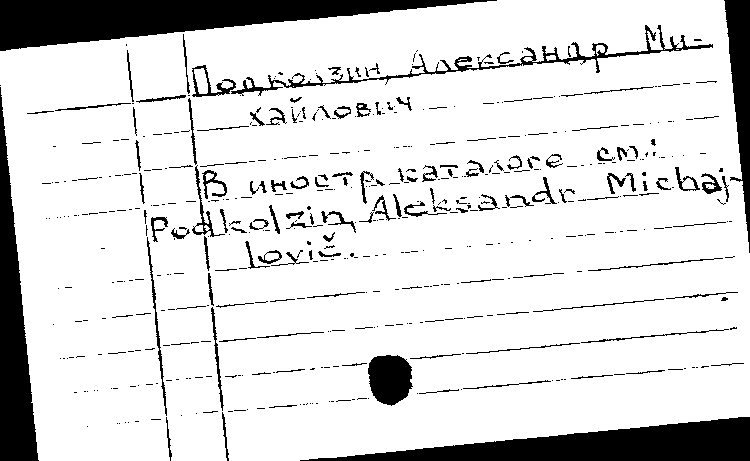 Подколзин, Александр Ми-
хайлович
В иностр. каталоге см.:
Podkolzin, Aleksandr Michaj-
lovič.